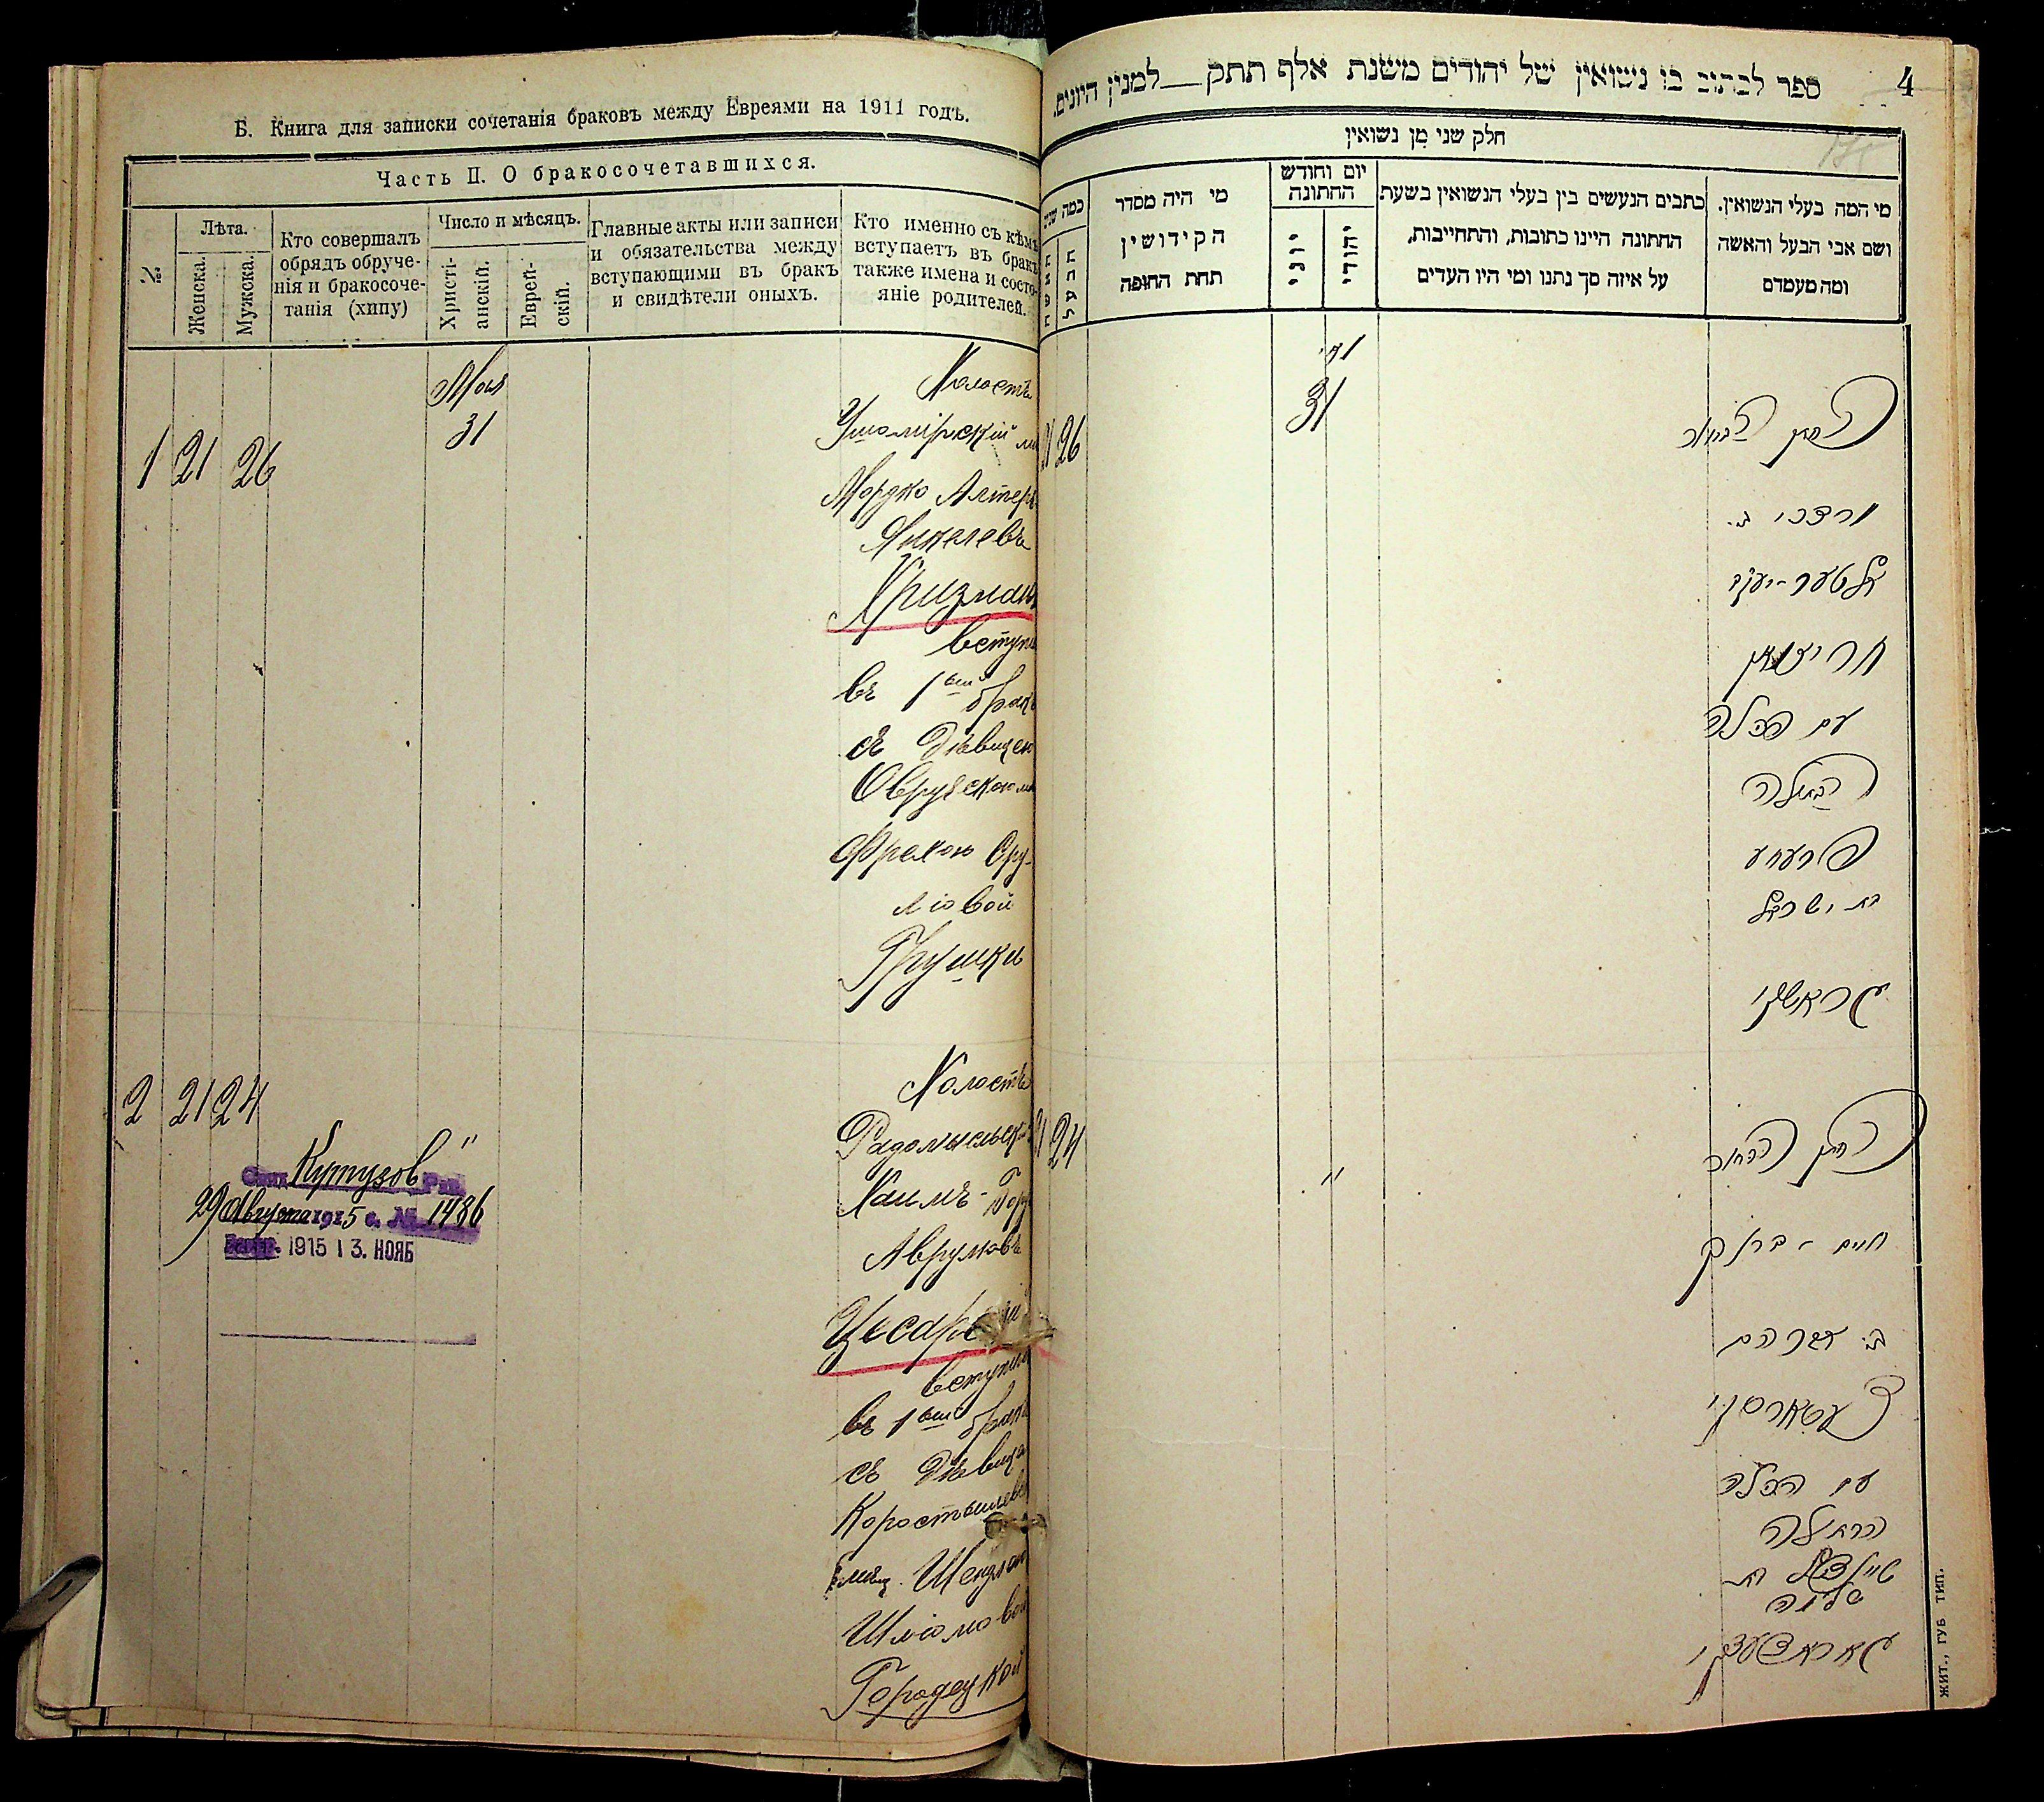 Б. Книга для записки сочетанія браковъ между Евреями на 1911 годъ.
Часть II. О бракосочетавшихся.
№
Лѣта.
Женска.
Мужска.
Кто совершалъ
обрядъ обруче-
нія и бракосоче-
танія (хипу)
Число и мѣсяцъ.
Христі-
анскій.
Еврей-
скій.
Главные акты или записи
и обязательства между
вступающими въ бракъ
и свидѣтели оныхъ.
Кто именно съ кѣмъ
вступаетъ въ бракъ
также имена и состо-
яніе родителей.
1 21 26
Мая
31
Холостъ
Ушомірскій
Мордко Алтеръ
Янкелевъ
Кризман
вступи
въ 1вый бракъ
съ дѣвицею
Овручскою
Фрахою Сру-
ліовой
Грушки
2 21 24
Холостъ
Радомысльск
Хаимъ-Бор
Аврумовъ
Цесарс
вступи
въ 1вый бракъ
съ дѣвица
Коростышевск
мѣщ. Шендлею
Шліомовой
Городецкой
Кутузов
29 Августа 1915 г. № 1486
1915 13. НОЯБ
4
ספר לכתוב בו נשואין של יהודים משנת אלף תתק למנין היונים.
חלק שני מן נשואין
מי המה בעלי הנשואין.
ושם אבי הבעל והאשה
ומה מעמדם
כתבים הנעשים בין בעלי הנשואין בשעת
החתונה היינו כתובות, והתחייבות,
על איזה סך נתנו ומי היו העדים
יום וחודש
החתונה
יהודי
יוני
מי היה מסדר
הקידושין
תחת החופה
כמה שנים
הבעל
האשה
מאי
31
21 26
החתן הבחור
מרדכי ב.
אלטער-יעקב
חריזמאן
עם הכלה
הבתולה
פרעחע
בת ישראל
גראשקי
24
"
החתן הבחור
חיים - ברוך
ב. אברהם
צעסארסקי
עם הכלה
הבתולה
שיינדל בת
שלמה
גאראדעצקי
ЖИТ., ГУБ ТИП.